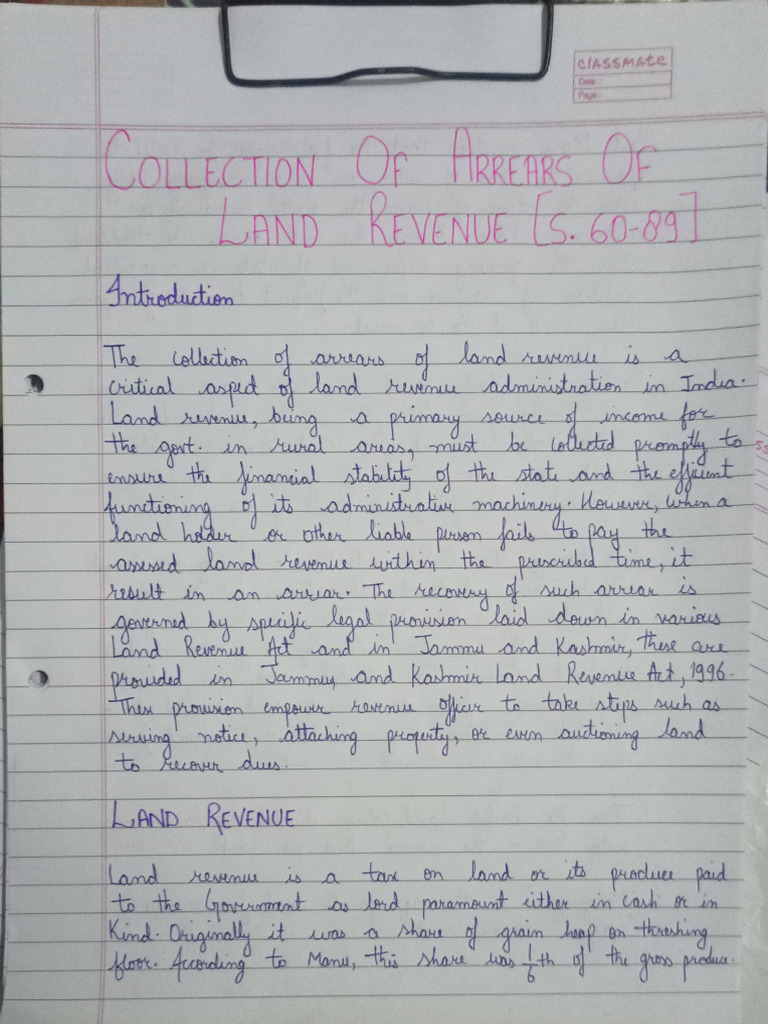 CLASSMATE
Date :
Page :
COLLECTION OF ARREARS OF
LAND REVENUE [S. 60-89]
Introduction
The collection of arrears of land revenue is a
critical aspect of land revenue administration in India.
Land revenue, being a primary source of income for
the govt. in rural areas, must be collected promptly to
ensure the financial stability of the state and the efficient
functioning of its administrative machinery. However, when a
land holder or other liable person fails to pay the
assessed land revenue within the prescribed time, it
result in an arrear. The recovery of such arrear is
governed by specific legal provision laid down in various
Land Revenue Act and in Jammu and Kashmir, these are
provided in Jammu and Kashmir Land Revenue Act, 1996.
These provision empower revenue officer to take steps such as
serving notice, attaching property, or even auctioning land
to recover dues.
LAND REVENUE
Land revenue is a tax on land or its produce paid
to the Government as lord paramount either in cash or in
Kind. Originally it was a share of grain heap on threshing
floor. According to Manu, this share was 1/6th of the gross produce.